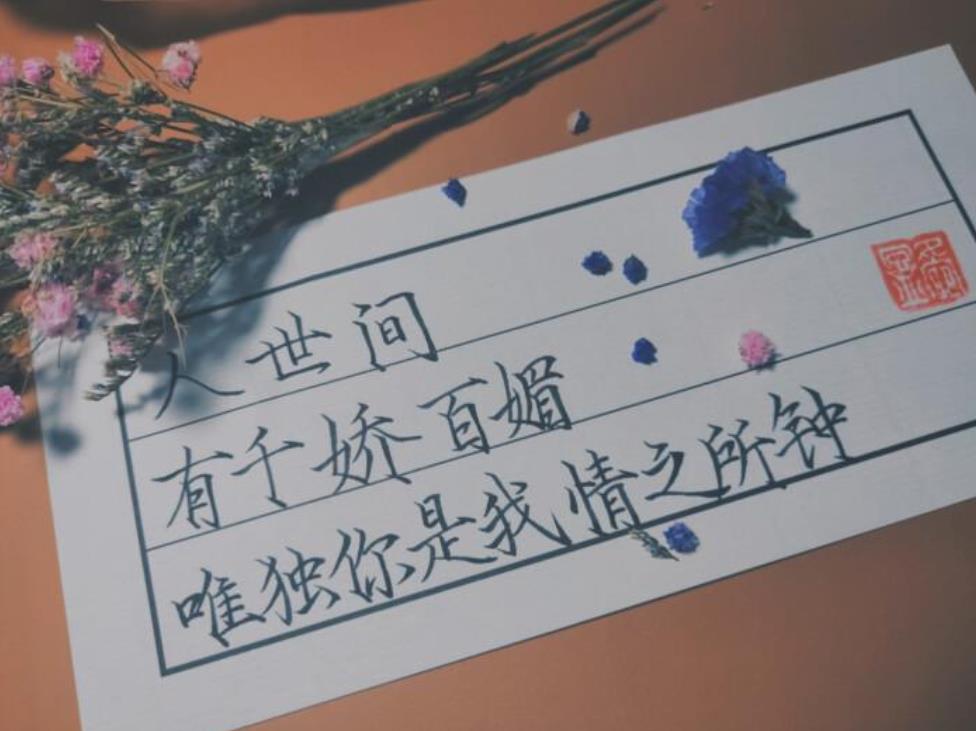 人世间
有千娇百媚
唯独你是我情之所钟